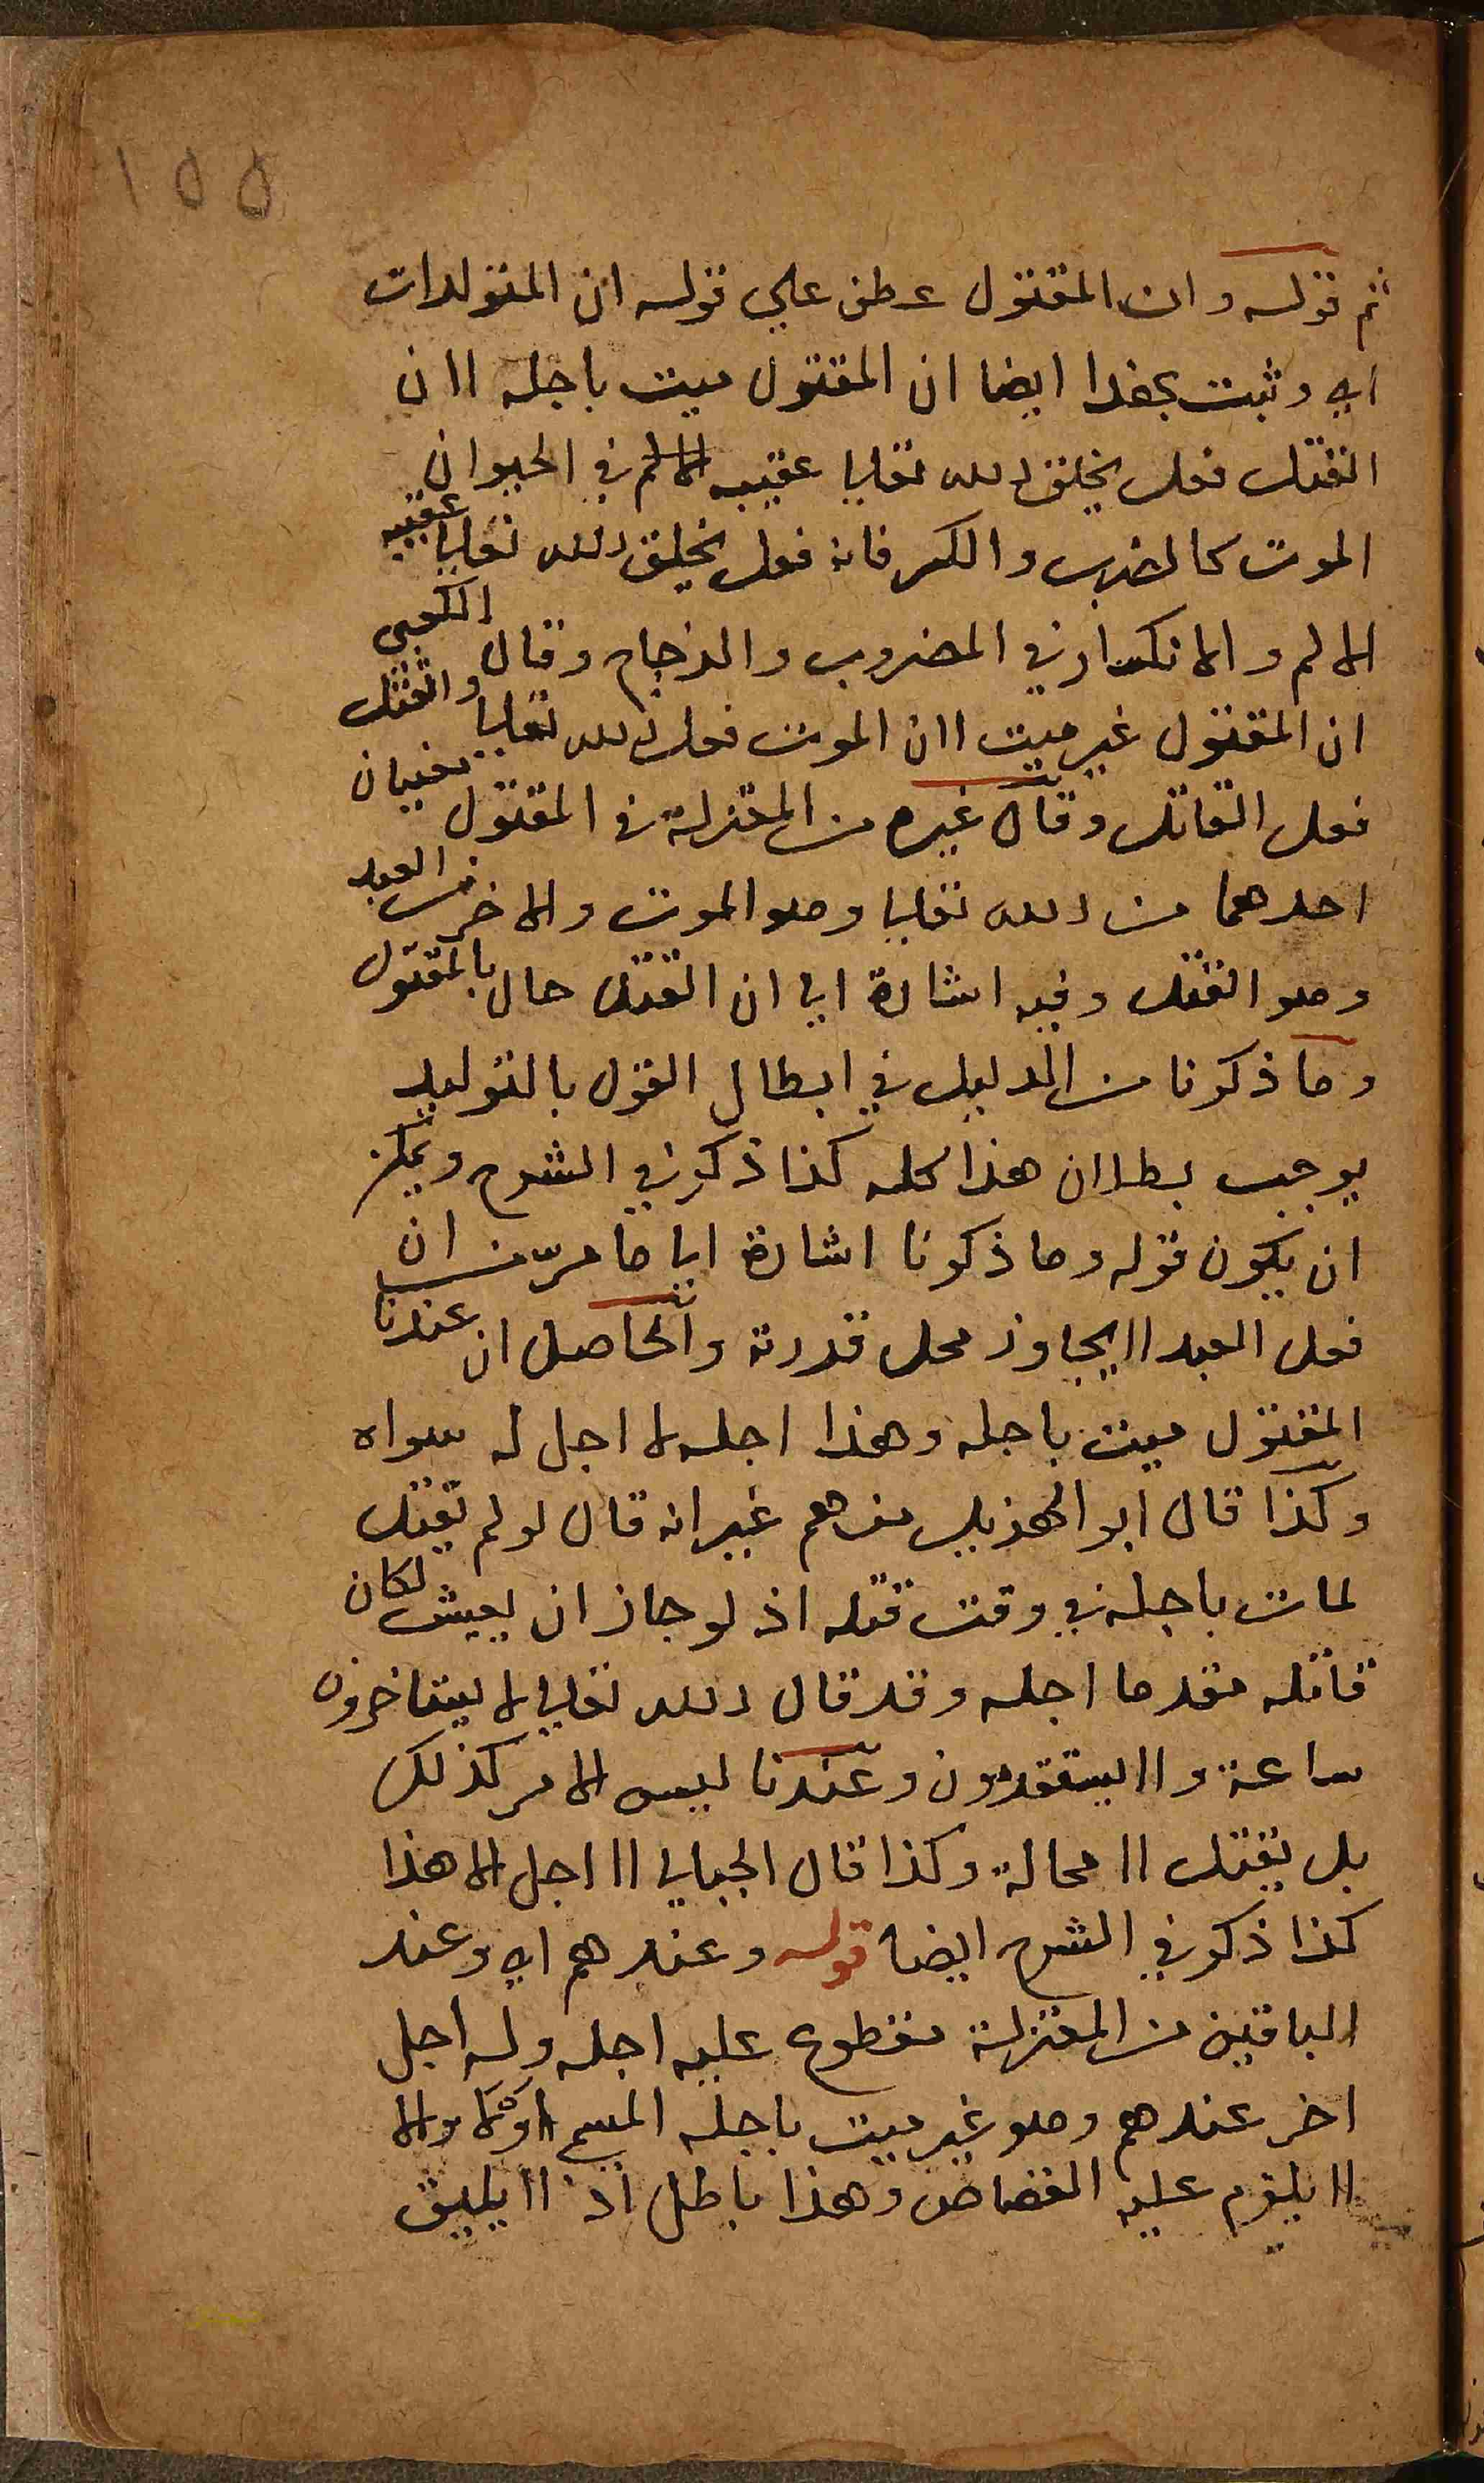 ١٥٥
ثم قوله وان المقتول عطف علي قوله ان المتولدات
اي وثبت بهذا ايضا ان المقتول ميت باجله لان
القتل فعل يخلق الله تعالي عقيبه في الحيوان
الموت كالضرب والكسر فانه فعل يخلق الله تعالي عقيبه
الالم والانكسار في المضروب والزجاج وقال الكعبي
ان المقتول غير ميت لان الموت فعل الله تعالي والقتل
فعل القاتل وقال غيره من المعتزلة في المقتول معنيان
احدهما من الله تعالي وهو الموت والاخر من العبد
وهو القتل وفيه اشارة الي ان القتل حال بالمقتول
وما ذكرنا من الدليل في ابطال القول بالتوليد
يوجب بطلان هذا كله كذا ذكر في الشرح ويمكن
ان يكون قوله وما ذكرنا اشارة الي ما مر من ان
فعل العبد لا يجاوز محل قدرته والحاصل ان عندنا
المقتول ميت باجله وهذا اجله لا اجل له سواه
وكذا قال ابو الهذيل منهم غير انه قال لو لم يقتل
لمات باجله في وقت قتله اذ لو جاز ان يعيش لكان
قاتله مقدما اجله وقد قال الله تعالي لا يستاخرون
ساعة ولا يستقدمون وعندنا ليس الامر كذلك
بل يقتل لا محالة وكذا قال الجبايي لا اجل الا هذا
كذا ذكر في الشرح ايضا قوله وعندهم اي وعند
الباقين من المعتزلة مقطوع عليه اجله وله اجل
اخر عندهم وهو غير ميت باجله المسمي والا
لا يلزم عليه القصاص وهذا باطل اذ لا يليق